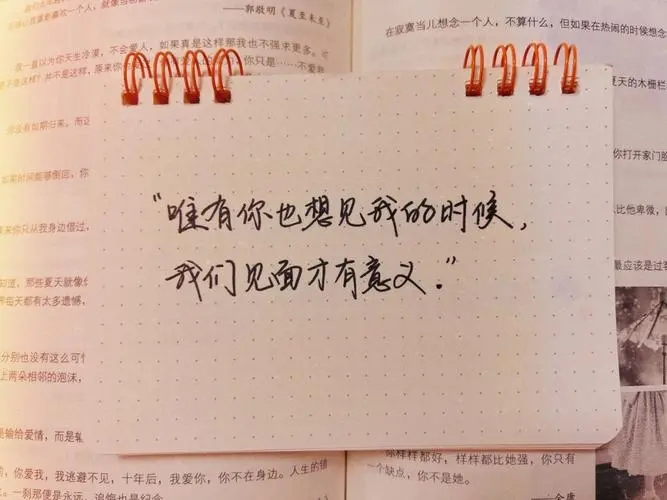 ——郭敬明《夏至未至》
我一直以为你天生冷漠，不会爱人，如果真是这样那我也不强求更多。可
在寂寞当儿想念一个人，不算什么，但如果在热闹的时候想念
夏天的木栅栏
你打开家门
比他卑微，
最应该是过
“唯有你也想见我的时候，
我们见面才有意义。”
你没有如期归来，而这
如果时间能够倒回，你
原来你只从我身边借过，
知道，那些夏天就像
每天都有太多遗憾，
分别也没有这么可
上两朵相邻的泡沫，
是输给爱情，而是输
你爱我，我逃避不见，十年后，我爱你，你不在身边。人生的错
一刹那便是永远，追悔也是纪念
你样样都好，样样都比她强，你只有
一个缺点，你不是她。